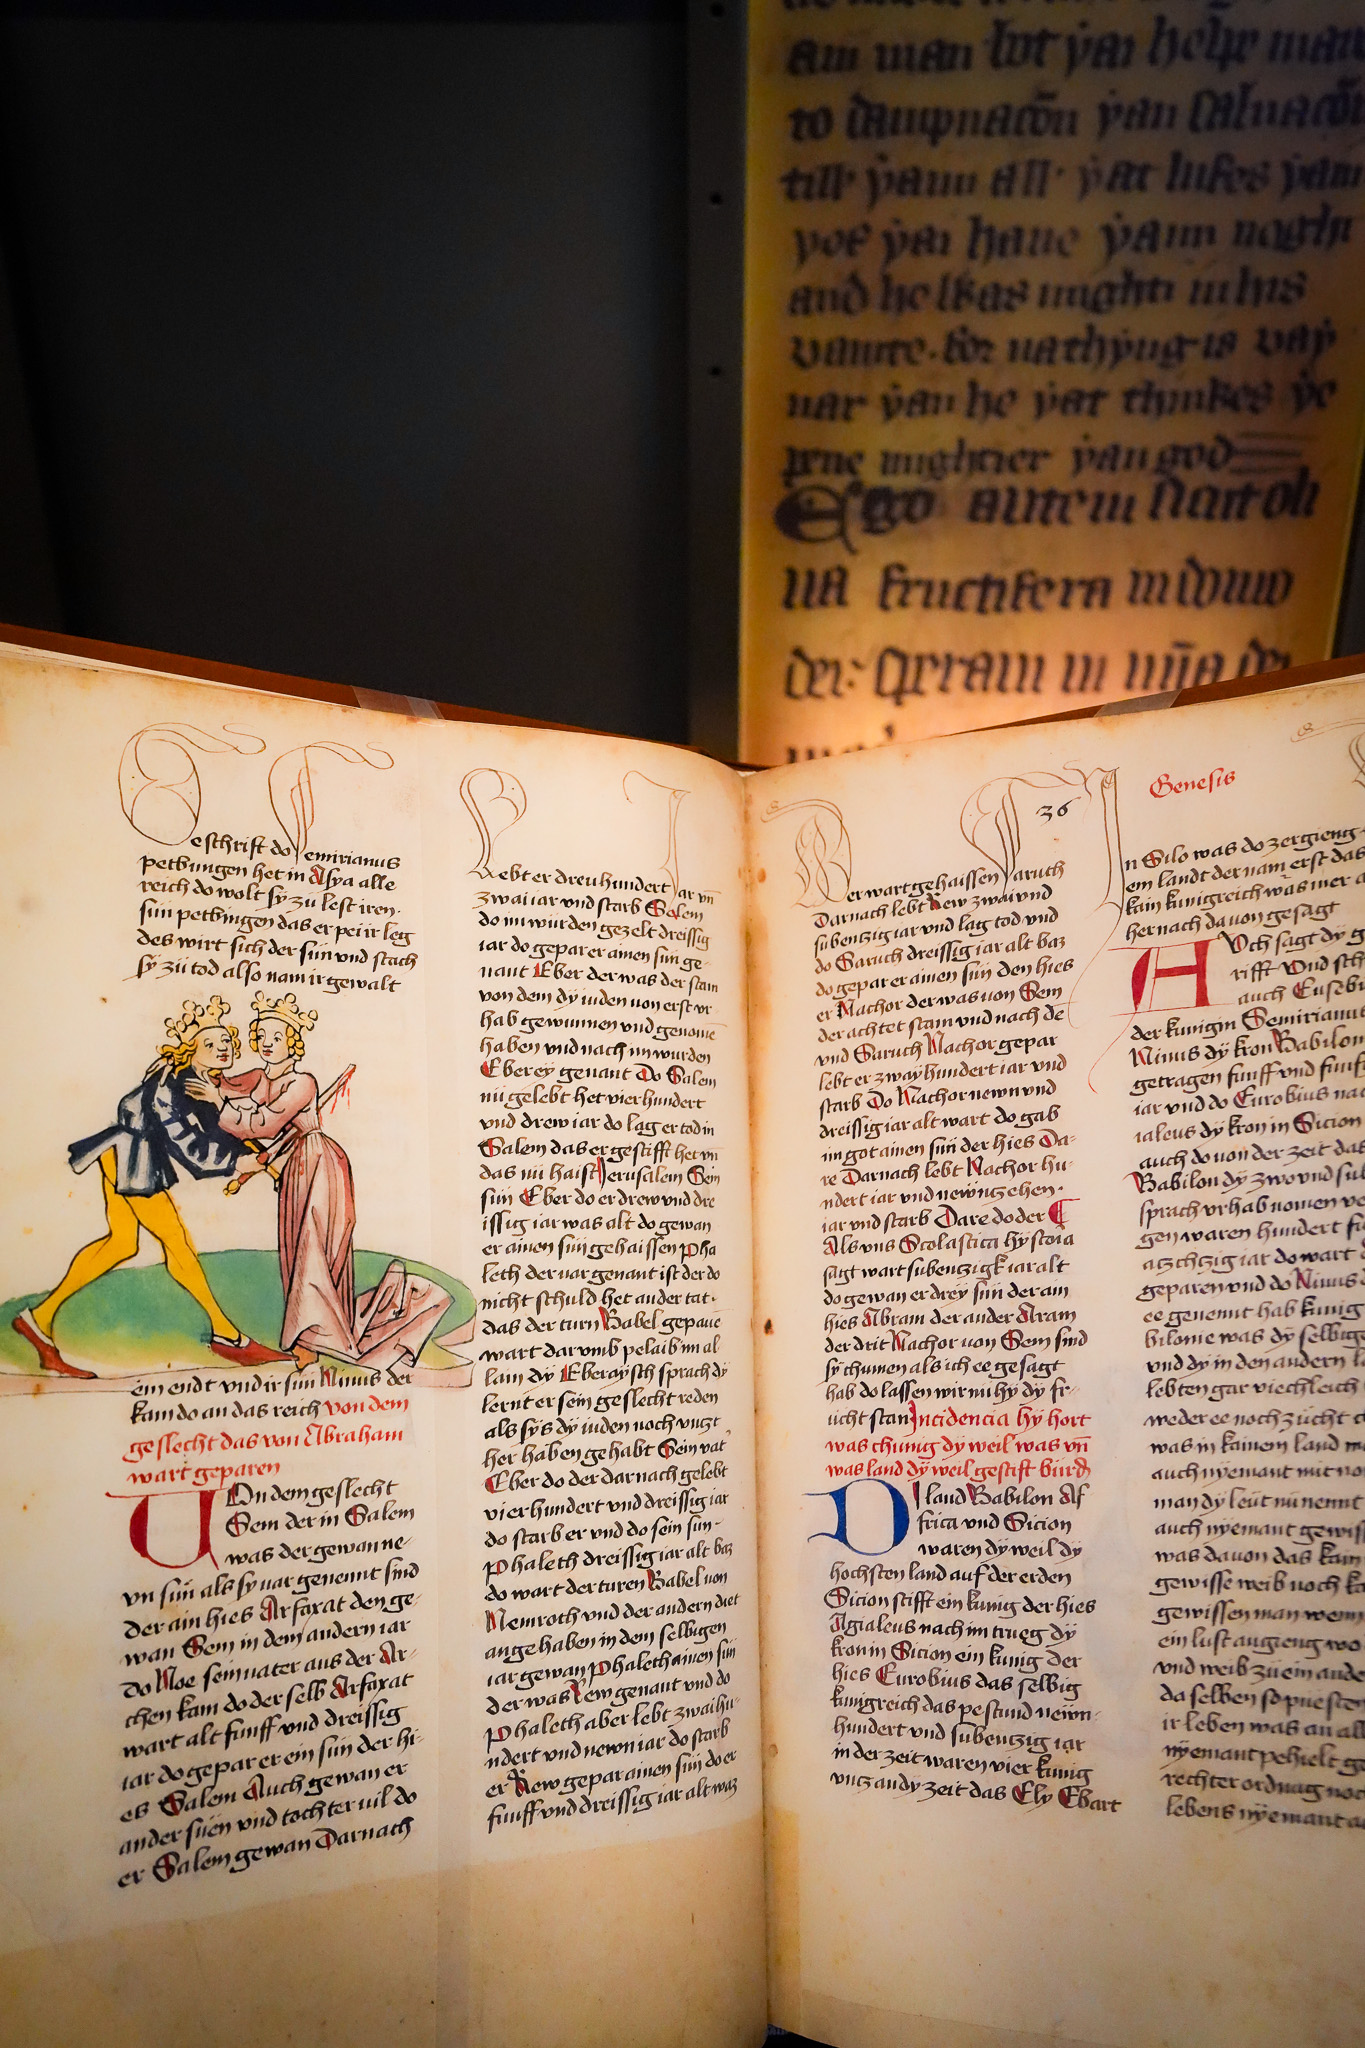 am man bot þai helpe man
to dampnacōn þan saluacōn
till þaim all þat lufes þaim
yof þai haue þaim noght
and he was mighti in his
vanite. for nathyng is vay
nar þan he þat thinkes
mightier þan god
Ego autem
na fructifera in domo
dei: Speraui in
eschrift do emirianus
pethungen het in Asya alle
reich do wolt sy zu lest iren
sun pethingen das er pei ir leg
des wirt sich der sun vnd stach
sy zu tod also nam ir gewalt
ein endt vnd ir sun Ninus der
kam do an das reich von dem
geslecht das von Abraham
wart geparen
Von dem geslecht
Sem der in Salem
was der gewan ne-
vn sün als sy uar genennt sind
der ain hies Arfaxat den ge-
wan Sem in dem andern iar
do Noe sein uater aus der Ar-
chen kam do der selb Arfaxat
wart alt funff vnd dreissig
iar do gepar er ein sün der hi-
es Salem Auch gewan er
ander süen vnd tochter uil do
er Salem gewan Darnach
Lebt er dreuhundert Jar vn̄
zwai iar vnd starb Salem
do nu würden gezelt dreissig
iar do gepar er ainen sun ge-
nant Eber der was der stam
von dem dy iuden von erst vr
hab gewunnen vnd genome
haben vnd nach im wurden
Eberey genant Do Salem
nü gelebt het vierhundert
vnd drew iar do lag er tod in
Salem das er gestifft het vn̄
das nü haist Jerusalem Sem
sün Eber do er drew vnd dre
issig iar was alt do gewan
er ainen sün gehaissen Pha
leth der uar genant ist der do
nicht schuld het an der tat
das der turn Babel gepaut
wart dar umb pelaib im al
lain dy Eberaysch sprach dy
lernt er sein geslecht reden
als sys dy iuden noch vntzt
her haben gehabt Sein vat
Eber do der darnach gelebt
vierhundert vnd dreissig iar
do starb er vnd do sein sun
Phaleth dreissig iar alt baz
do wart der turen Babel von
Nemroth vnd der andern diet
angehaben in dem selbigen
iar gewan Phaleth ainen sün
der was Rew genant vnd do
Phaleth aber lebt zwaihu-
ndert vnd newn iar do starb
er Rew gepar ainen sün do er
funff vnd dreissig iar alt waz
36
Genesis
Der wart gehaissen Saruch
Darnach lebt Rew zwai vnd
subenzig iar vnd lag tod vnd
do Saruch dreissig iar alt baz
do gepar er ainen sün den hies
er Nachor der was von Sem
der achtet stam vnd nach de
vnd Saruch Nachor gepar
lebt er zway hundert iar vnd
starb Do Nachor newn vnd
dreissig iar alt wart do gab
im got ainen sün der hies Da-
re Darnach lebt Nachor hu-
ndert iar vnd newnzehen
iar vnd starb Dare do der
Als vns Scolastica hystoria
sagt wart subenzigk iar alt
do gewan er drey sün der ain
hies Abram der ander Aram
der drit Nachor von Sem sind
sy chumen als ich ee gesagt
hab do lassen wir nu hy dy fr-
ucht stan Incidencia hy hort
was chunig dy weil was vn̄
was land dy weil gestift würd
Dj land Babilon Af
frica vnd Sicion
waren dy weil dy
hochsten land auf der erden
Sicion stifft ein kunig der hies
Agialeus nach im trueg dy
kron in Sicion ein kunig der
hies Eurobius das selbig
kunigreich das pestund newn-
hundert vnd subenzig iar
in der zeit waren vier kunig
vntz an dy zeit das Ely Ewart
In Silo was do zergieng
em landt der nam erst das
kain kunigreich was mer
hernach dauon gesagt
Avch sagt dy
rifft Vnd sch
auch Eusebi
der kunigin Semirianus
Ninus dy kron Babilon
getragen funff vnd funf
iar vnd do Eurobius nac
ialeus dy kron in Sicion
auch do von der zeit das
Babilon dy zwo vnd sub
sprach vrhab nomen
gen waren hundert
achzig iar do wart
geparen vnd do Ninus
ee genennt hab kunig
bilonie was dy selbig
vnd dy in den andern
lebten gar viechleich
weder ee noch zücht
was in kainem land
auch nyemant mit
man dy leüt nü nennt
auch nyemant gewis
was dauon das kain
gewisse weib noch
gewissen man wenn
ein lust angieng wo
vnd weib zu ein ande
da selben so
ir leben was an all
nyemant pehielt
rechter ordnug noc
lebens nyemant